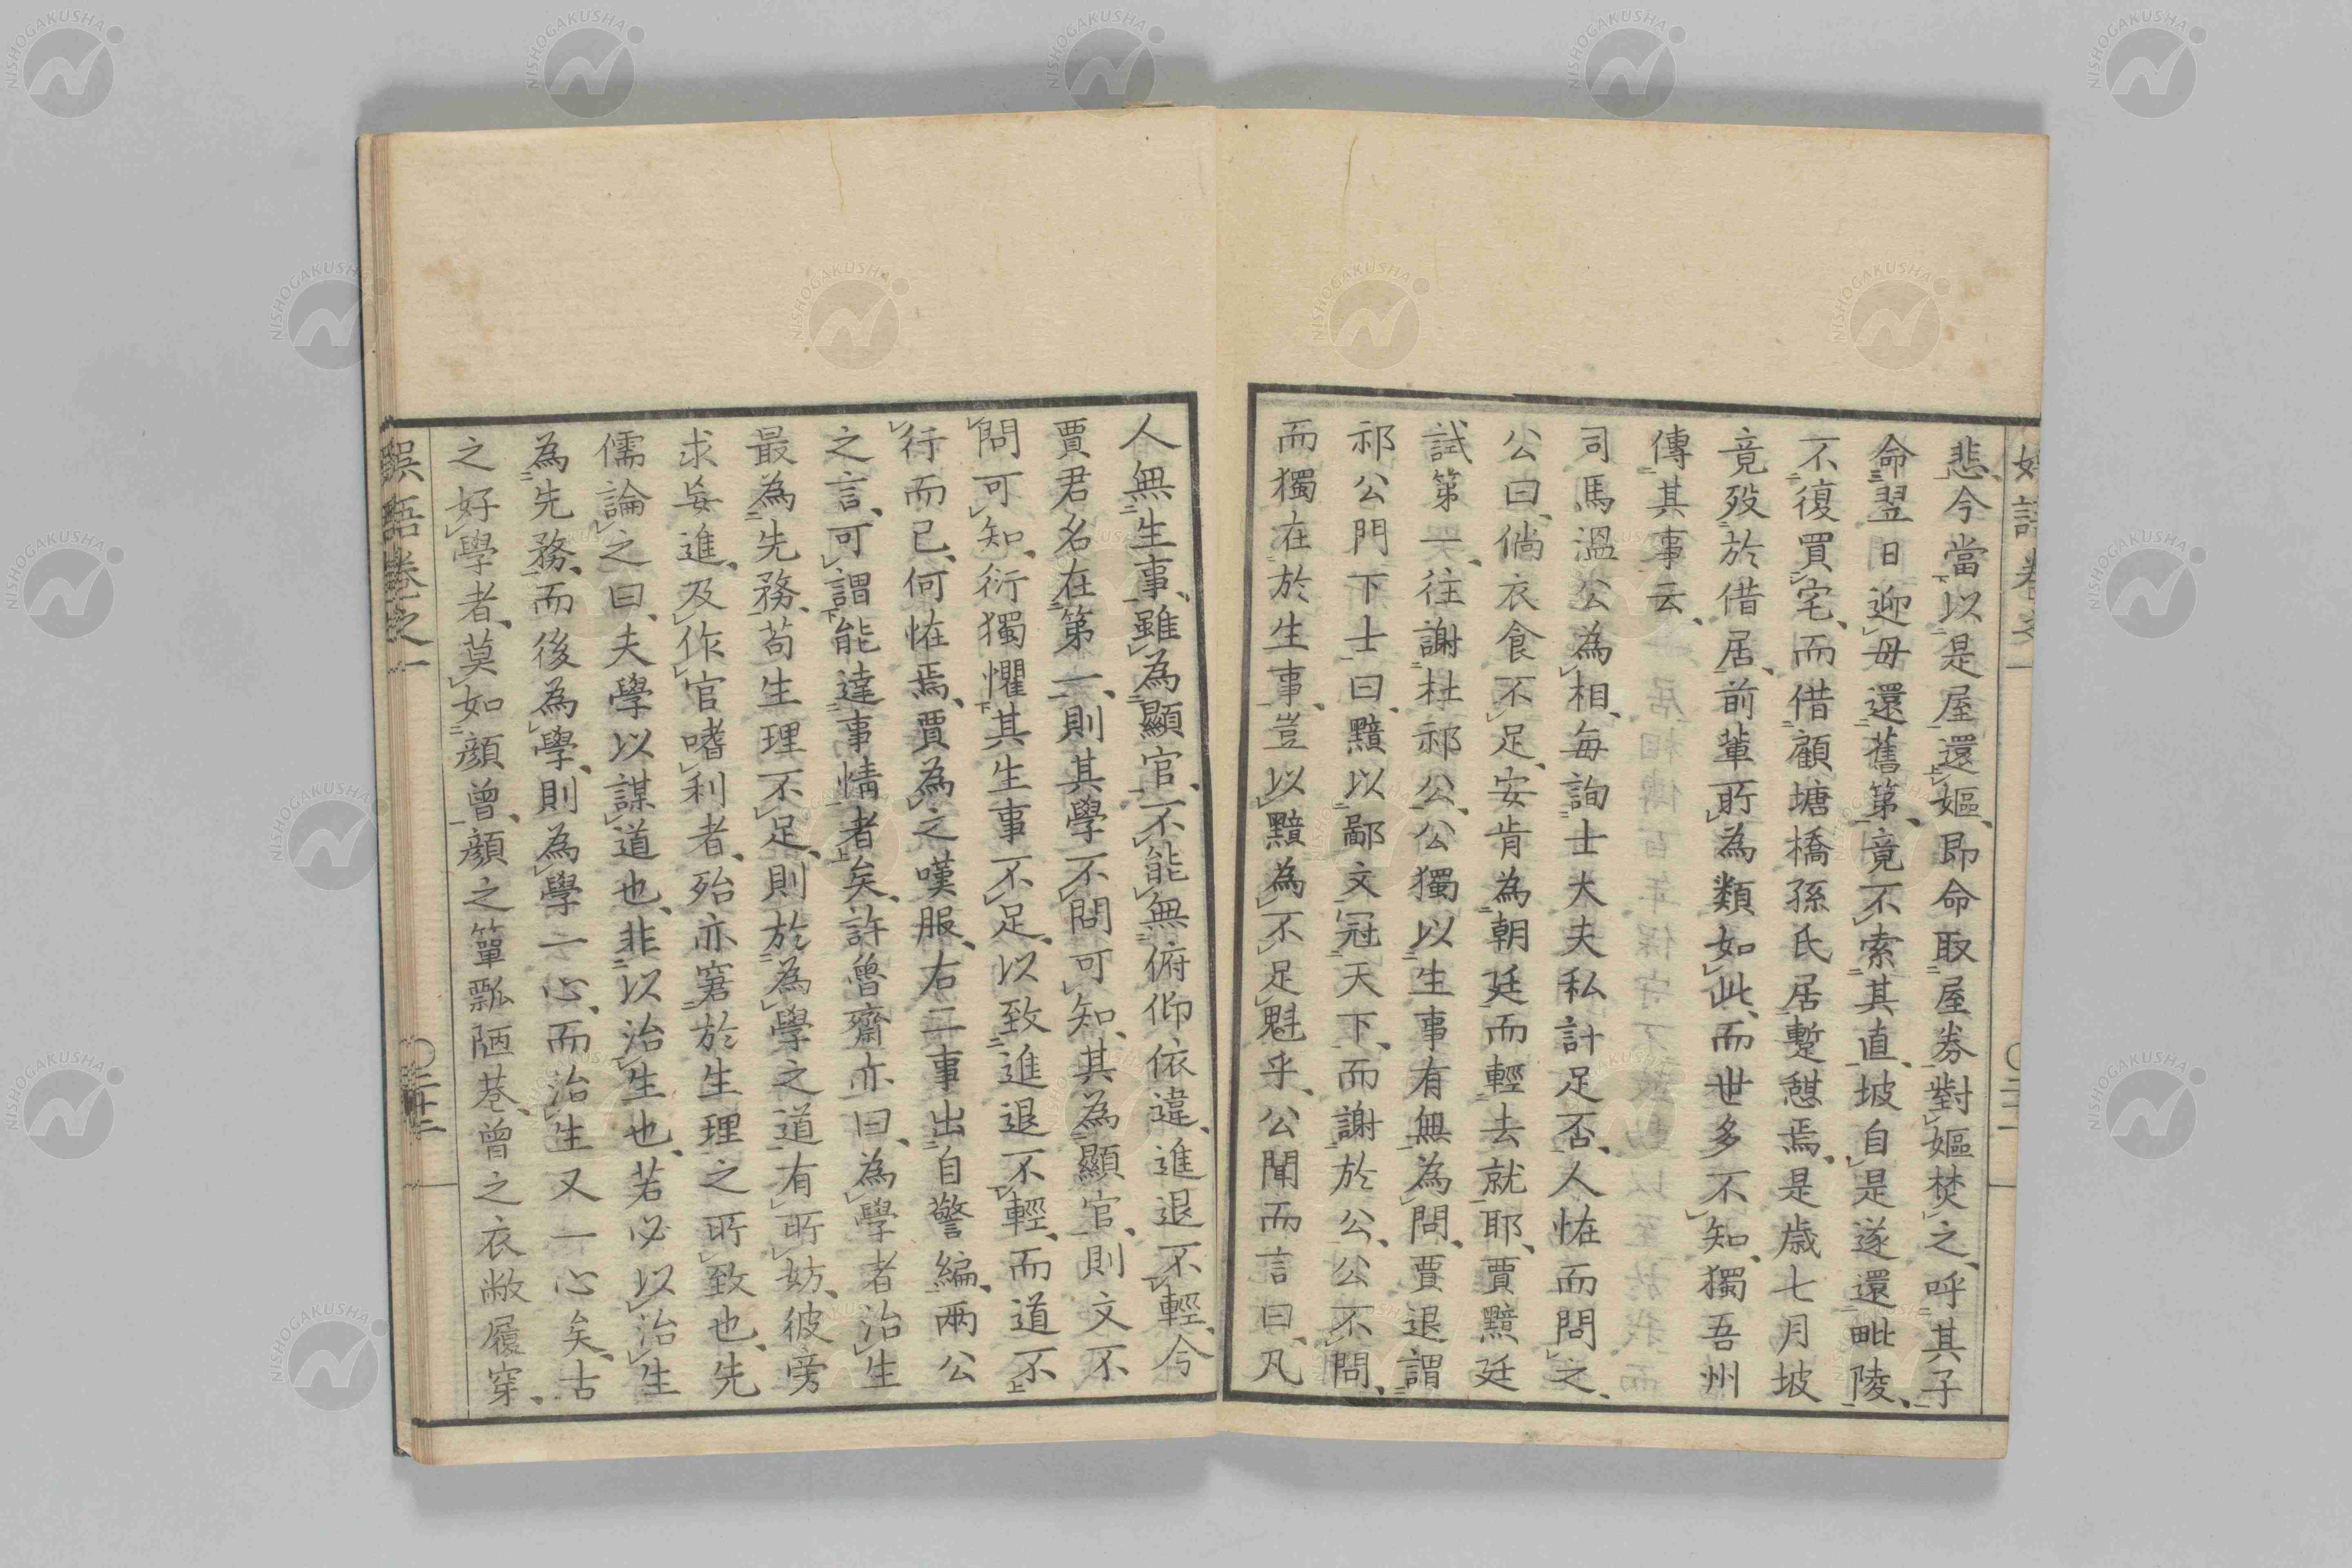 悲、今當以是屋還嫗、即命取屋劵對嫗焚之、呼其子
命翌日迎母還舊第、竟不索其直、坡自是遂還毗陵、
不復買宅、而借顧塘橋孫氏居暫憇焉、是歳七月坡
竟歿於借居、前輩所為類如此、而世多不知、獨吾州
傳其事云、
司馬溫公為相、每詢士大夫私計足否、人恠而問之、
公曰、倘衣食不足、安肯為朝廷而輕去就耶、賈黯廷
試第一、往謝杜祁公、公獨以生事有無為問、賈退謂
祁公門下士曰、黯以鄙文冠天下、而謝於公、公不問、
而獨在於生事、豈以黯為不足魁乎、公聞而言曰、凡
人無生事、雖為顯官、不能無俯仰依違、進退不輕、今
賈君名在第一、則其學不問可知、其為顯官、則文不
問可知、衍獨懼其生事不足、以致進退不輕、而道不
行而已、何恠焉、賈為之嘆服、右二事出自警編、兩公
之言、可謂能達事情者矣、許魯齋亦曰、為學者治生
最為先務、苟生理不足、則於為學之道有所妨、彼旁
求妄進、及作官嗜利者、殆亦窘於生理之所致也、先
儒論之曰、夫學以謀道也、非以治生也、若必以治生
為先務、而後為學、則為學一心、而治生又一心矣、古
之好學者、莫如顔曾、顔之簞瓢陋巷、曾之衣敝履穿、
誤語卷之一
〇二十二
NISHOGAKUSHA